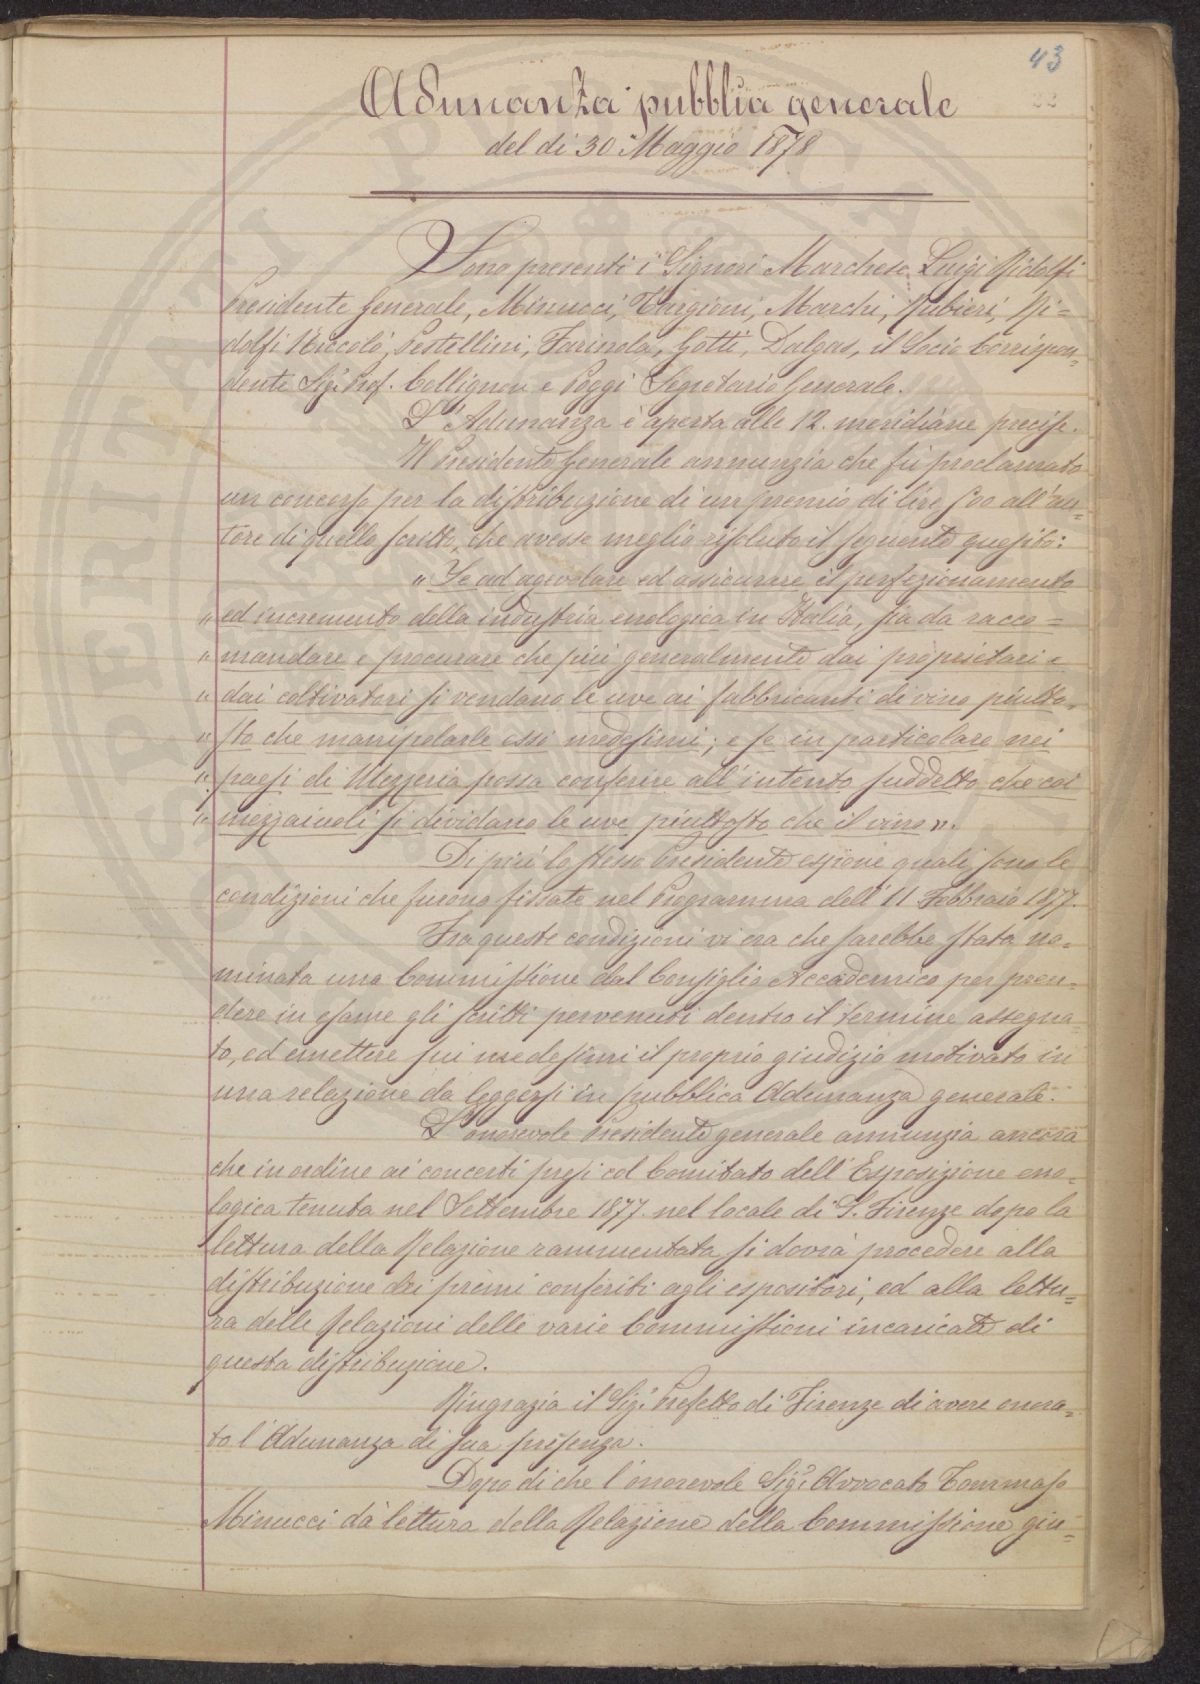 43
22
Adunanza pubblica generale
del di 30 Maggio 1878
Sono presenti i Signori Marchese Luigi Ridolfi
Presidente Generale, Minucci, Targioni, Marchi, Rubieri, Ri=
dolfi Niccolò, Pestellini, Farinola, Gotti, Dalgas, il Socio Corrispon=
dente Sigr. Prof. Collignon e Poggi Segretario Generale.
L'Adunanza è aperta alle 12. meridiane precise.
Il Presidente Generale annunzia che fu proclamato
un concorso per la distribuzione di un premio di lire 500 all'au=
tore di quello scritto, che avesse meglio risoluto il seguente quesito:
"Se ad agevolare ed assicurare il perfezionamento
" ed incremento della industria enologica in Italia, sia da racco=
" mandare e procurare che più generalmente dai proprietari e
" dai coltivatori si vendano le uve ai fabbricanti di vino piutto=
" sto che manipolarle essi medesimi; e se in particolare nei
" paesi di Mezzeria possa conferire all'intento suddetto che coi
" mezzaiuoli si dividano le uve piuttosto che il vino".
Di più lo stesso Presidente espone quali sono le
condizioni che furono fissate nel Programma dell'11 Febbraio 1877.
Fra queste condizioni vi era che sarebbe stata no=
minata una Commissione dal Consiglio Accademico per pren=
dere in esame gli scritti pervenuti dentro il termine assegna
to, ed emettere sui medesimi il proprio giudizio motivato in
una relazione da leggersi in pubblica Adunanza generale.
L'onorevole Presidente generale annunzia ancora
che in ordine ai concerti presi col Comitato dell'Esposizione eno=
logica tenuta nel Settembre 1877 nel locale di S. Firenze dopo la
lettura della Relazione rammentata si dovrà procedere alla
distribuzione dei premi conferiti agli espositori, ed alla lettu=
ra delle Relazioni delle varie Commissioni incaricate di
questa distribuzione.
Ringrazia il Sigr. Prefetto di Firenze di avere onora=
to l'Adunanza di sua presenza.
Dopo di che l'onorevole Sigr. Avvocato Tommaso
Minucci dà lettura della Relazione della Commissione giu=